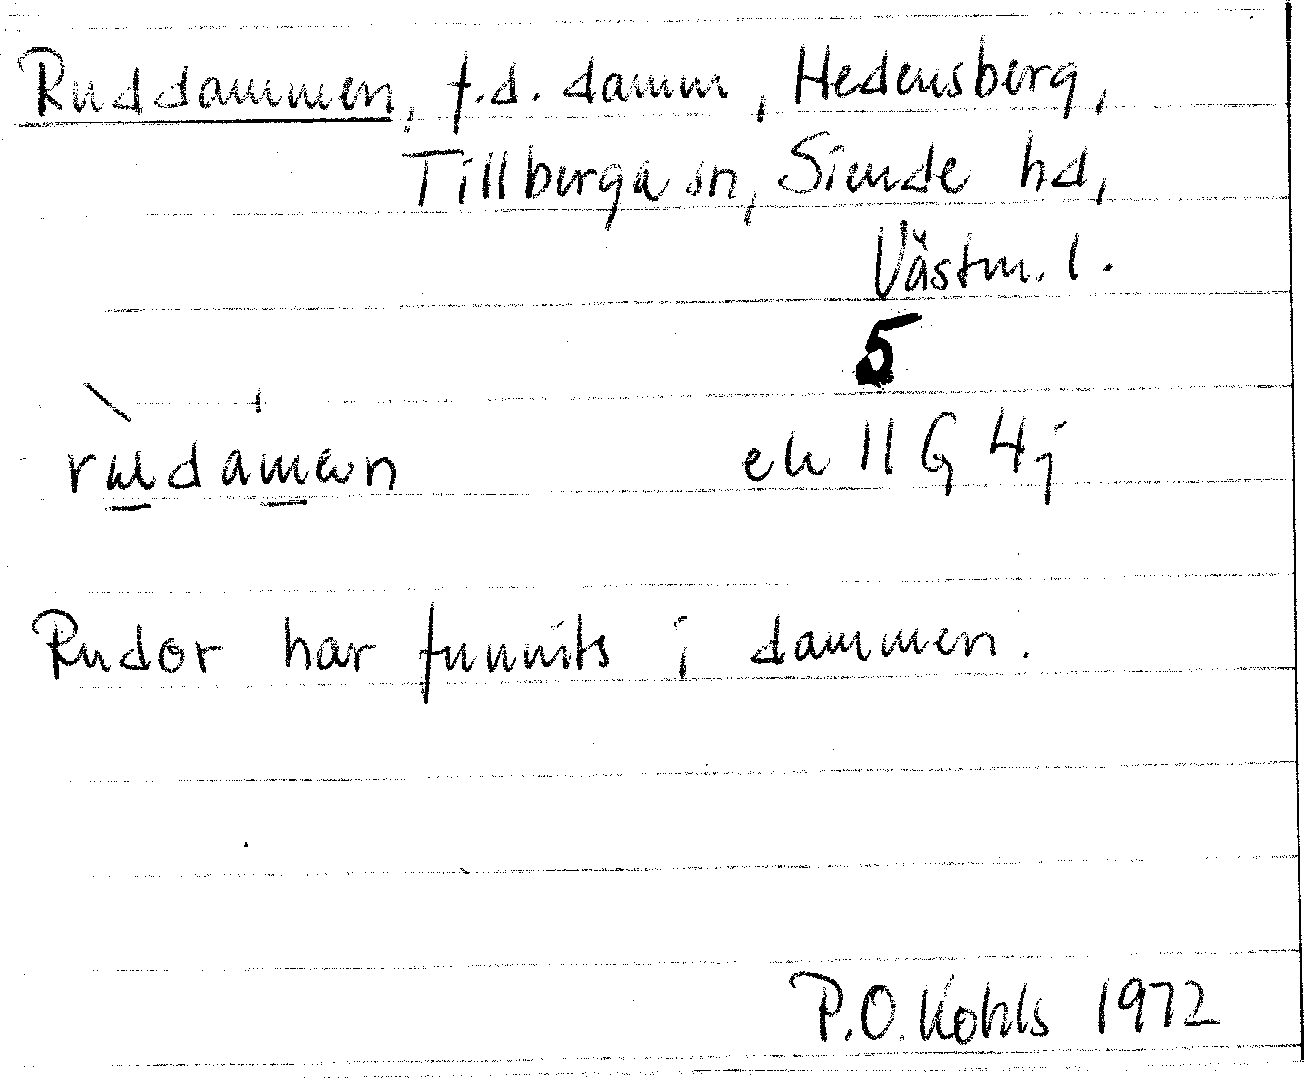 Ruddammen, f.d. damm, Hedensberg,
Tillberga sn, Siende hd,
Västm. l.
5
rudamen ek 11 G 4j
Rudor har funnits i dammen.
P.O. Kohls 1972